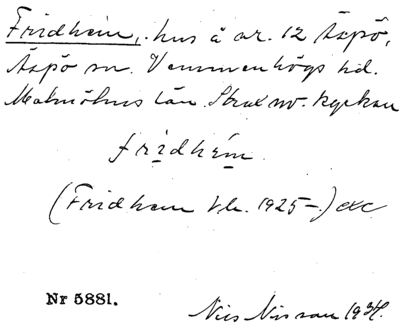 Fridhem, hus å nr. 12 Äspö,
Äspö sn. Vemmenhögs hd.
Malmöhus län. Strax nv. kyrkan
fridhém
(Fridhem kb. 1925–) exc
Nr 5881.
Nils Nilsson 1934.